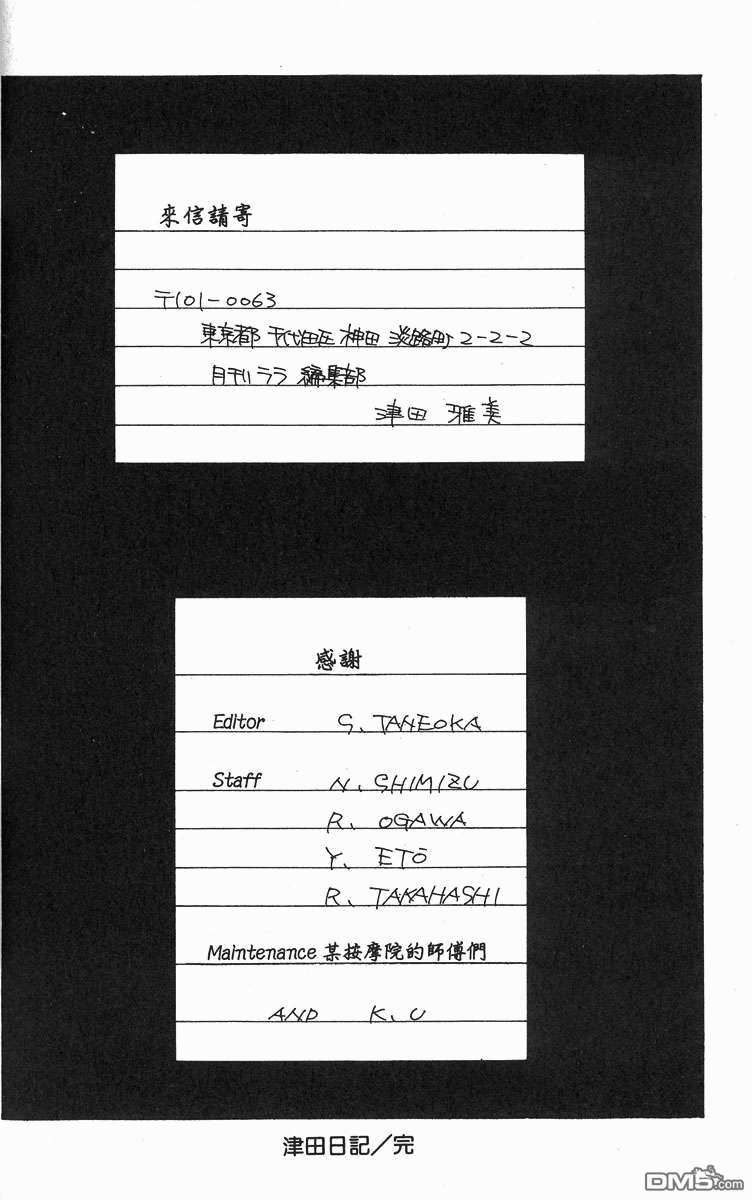 來信請寄
〒101-0063
東京都 千代田区 神田 淡路町 2-2-2
月刊ララ 編集部
津田 雅美
感謝
Editor S. TANEOKA
Staff N. SHIMIZU
R. OGAWA
Y. ETŌ
R. TAKAHASHI
Maintenance 某按摩院的師傅們
AND K. U
津田日記/完
DM5.com